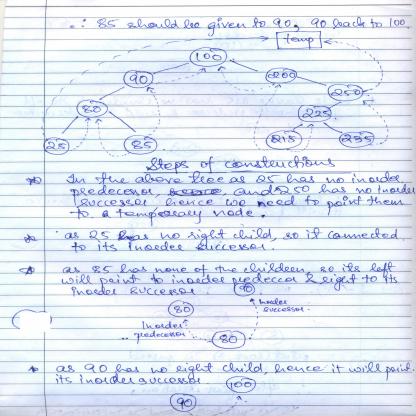 ∴ 85 should be given to 90, 90 back to 100.
temp
100
90 200
250
80 225
25 85 215 235
Steps of constructions
In the above tree as 25 has no inorder
predecessor, and 250 has no inorder
successor, hence we need to point them
to a temporary node.
as 25 has no right child, so it connected
to its inorder successor.
as 85 has none of the children, so its left
will point to inorder predeccor & right to its
inorder successor.
90
80 Inorder successor.
Inorder predecessor
80
as 90 has no right child, hence it will point
its inorder successor
100
90